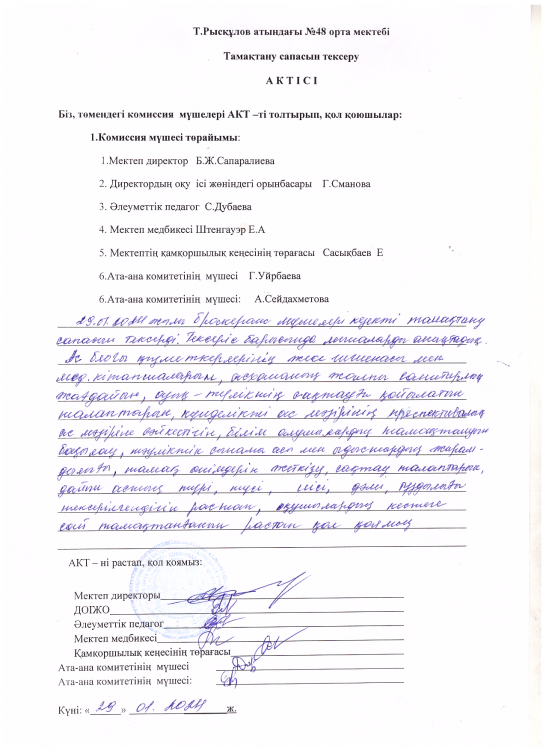 Т.Рысқұлов атындағы №48 орта мектебі
Тамақтану сапасын тексеру
А К Т І С І
Біз, төмендегі комиссия мүшелері АКТ –ті толтырып, қол қоюшылар:
1.Комиссия мүшесі төрайымы:
1.Мектеп директор Б.Ж.Сапаралиева
2. Директордың оқу ісі жөніндегі орынбасары Г.Сманова
3. Әлеуметтік педагог С.Дубаева
4. Мектеп медбикесі Штенгауэр Е.А
5. Мектептің қамқоршылық кеңесінің төрағасы Сасықбаев Е
6.Ата-ана комитетінің мүшесі Г.Уйрбаева
6.Ата-ана комитетінің мүшесі: А.Сейдахметова
29.01.2024 жылы бракераж мүшелері кезекті тамақтану
сапасын тексерді. Тексеріс барысында
Ас блогы қызметкерлерінің жеке гигиенасы мен
мед.кітапшаларын, асхананың жалпы санитарлық
жағдайын, азық - түліктің сақтауға қойылатын
талаптарын, күнделікті ас мәзірінің перспективалық
ас мәзіріне сәйкестігін, білім алушылардың тамақтануын
бақылау, тәуліктік сынама асы мен ыдыстардың жарам-
дылығы, тамақ өнімдерін жеткізу, сақтау талаптарын,
дайын астың түрі, түсі, иісі, дәмі,
тексерілгендігін растап, оқушылардың кестеге
сай тамақтанғанын растап қол қоямыз
АКТ – ні растап, қол қоямыз:
Мектеп директоры
ДОІЖО
Әлеуметтік педагог
Мектеп медбикесі
Қамқоршылық кеңесінің төрағасы
Ата-ана комитетінің мүшесі
Ата-ана комитетінің мүшесі:
Күні: « 29 » 01. 2024 ж.